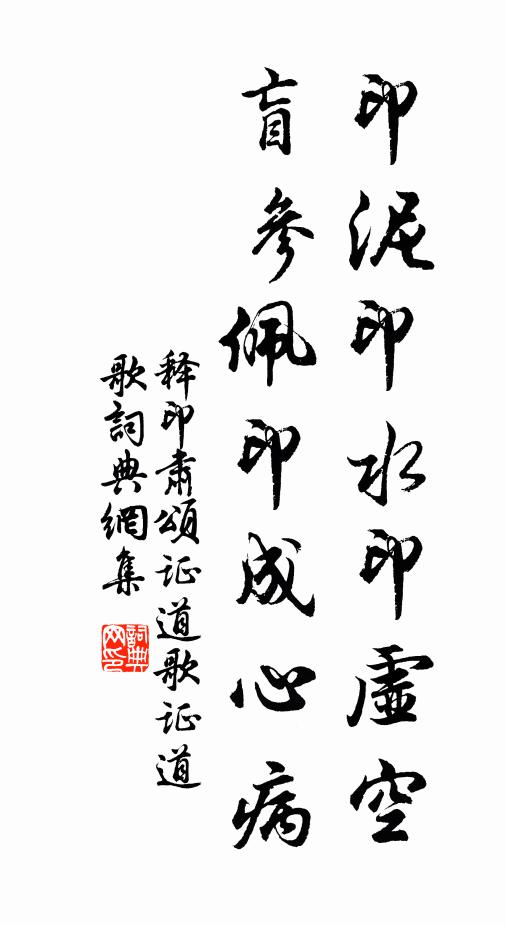 印泥印水印虚空
盲參佩印成心病
释印肅頌证道歌证道
歌詞典網集
詞典
网印